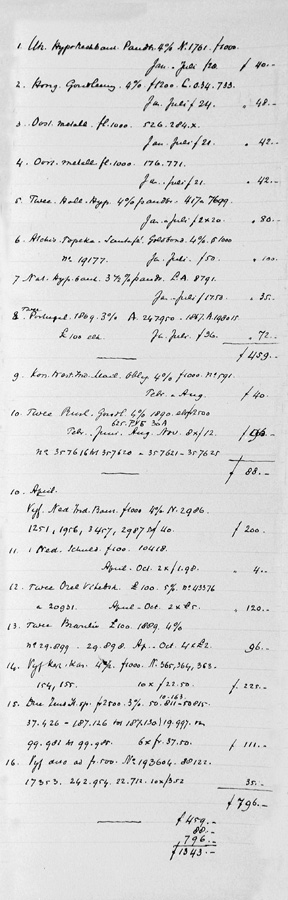 1. Utr. Hypotheekbank. Pandbr. 4% N. 1761. f1000.
Jan. Juli f20. f 40.-
2. Hong. Goudleening. 4% f1200 C. 034.733.
Ja. Juli f 24. " 48.-
3. Oost. metall. fl. 1000. 526.284.x.
Jan. Juli f 21. " 42.-
4. Oost. metall fl. 1000 176.771.
Ja. Juli f 21. " 42.-
5. Twee. Holl. Hyp. 4% pandbr. 417 a 7699.
Jan. Juli f 2x20. " 80.-
6. Atchis. Topeka. Santafé. Goldbond. 4% $1000
No. 19177. Ja. Juli. f50. " 100.
7. Nat. Hyp. bank. 3½% pandbr. L.A. 8791.
Jan. Juli f 17.50 " 35.-
8. Twee Portugal. 1869. 3% A. 247950. 1867. A. 198015.
£ 100 elk. Ja. Juli. f36. " 72.-
f 459.-
9. Kon. West. Ind. Mail. Oblig. 4% f1000. No 591.
Febr. Aug. f 40.
10. Twee Rusl. Goudl. 4% 1890. elk f2500
Febr. Juni. Aug. Nov. 8x f12.
No 357616 tot 357620 - 357621 - 357625
f 88.-
10. April.
Vijf. Ned. Ind. f1000 4% N. 2986.
1251, 1956, 3457, 2987 f 40. f 200.-
11. 1 Ned. Schuld. f100. 10418.
April - Oct. 2 x f1.98. " 4.-
12. Twee Orel Vitebsk. £ 100. 5% No 43376
a 20931. April - Oct. 2 x £5. " 120.-
13. Twee Brazilië £ 100. 1889. 4%
No 29.899 - 29.898. Ap. - Oct. 4 x £2. 96.-
14. Vijf 4% f1000. N. 365, 364, 363.
154, 155. 10 x f 22.50. f. 225.-
15. Drie f2500. 3%. 50.811 - 50815.
10.163.
37.426 - 187.126 tot 187.130 19.997.
99.981 tot 99.985. 6 x f. 37.50. f 111.-
16. Vijf duo ad fr. 500. No 193604. 88122.
17353. 242.954. 22.712. 10 x f3.52 35.-
f 796.-
f 459.-
88.-
796.-
f 1343.-